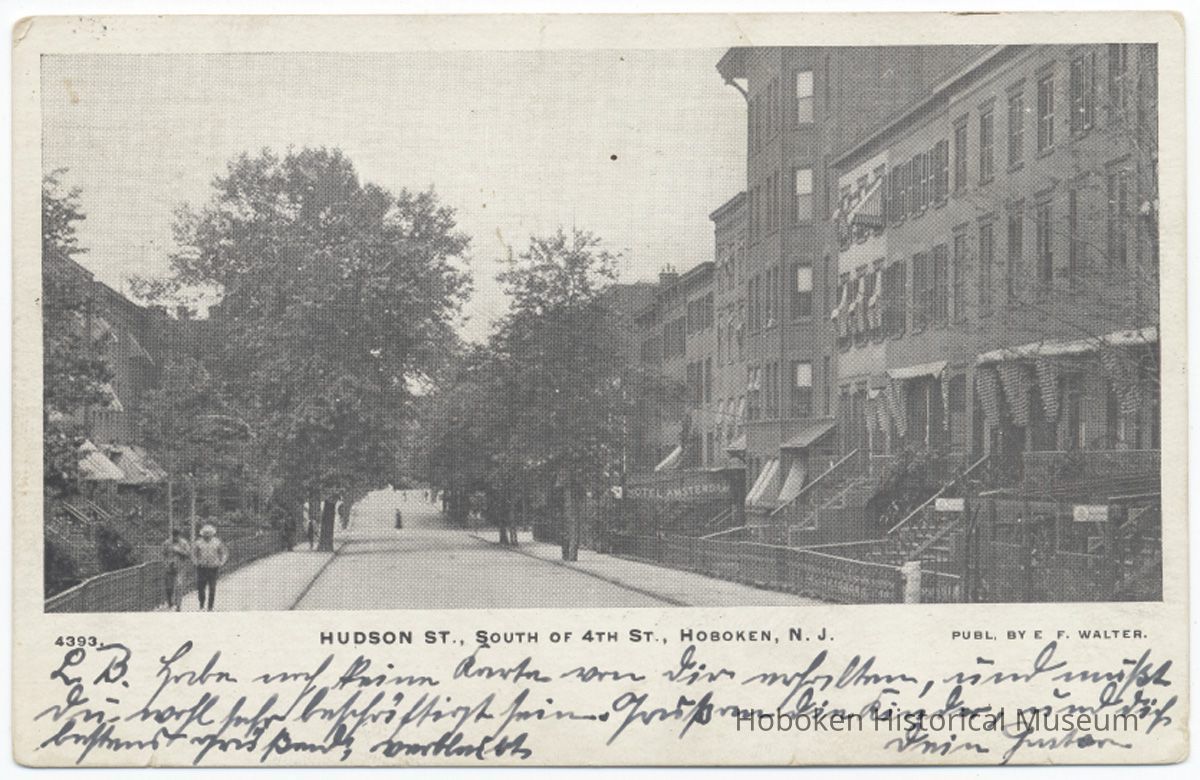 HOTEL AMSTERDAM
4393.
HUDSON ST., SOUTH OF 4TH ST., HOBOKEN, N. J.
PUBL. BY E. F. WALTER.
L. B. Habe noch keine Karte von Dir erhalten, und mußt
Du wohl sehr beschäftigt sein. Grüße an die Kinder und Dich
bestens Grüßend, verbleibt
Dein Gustav
Hoboken Historical Museum